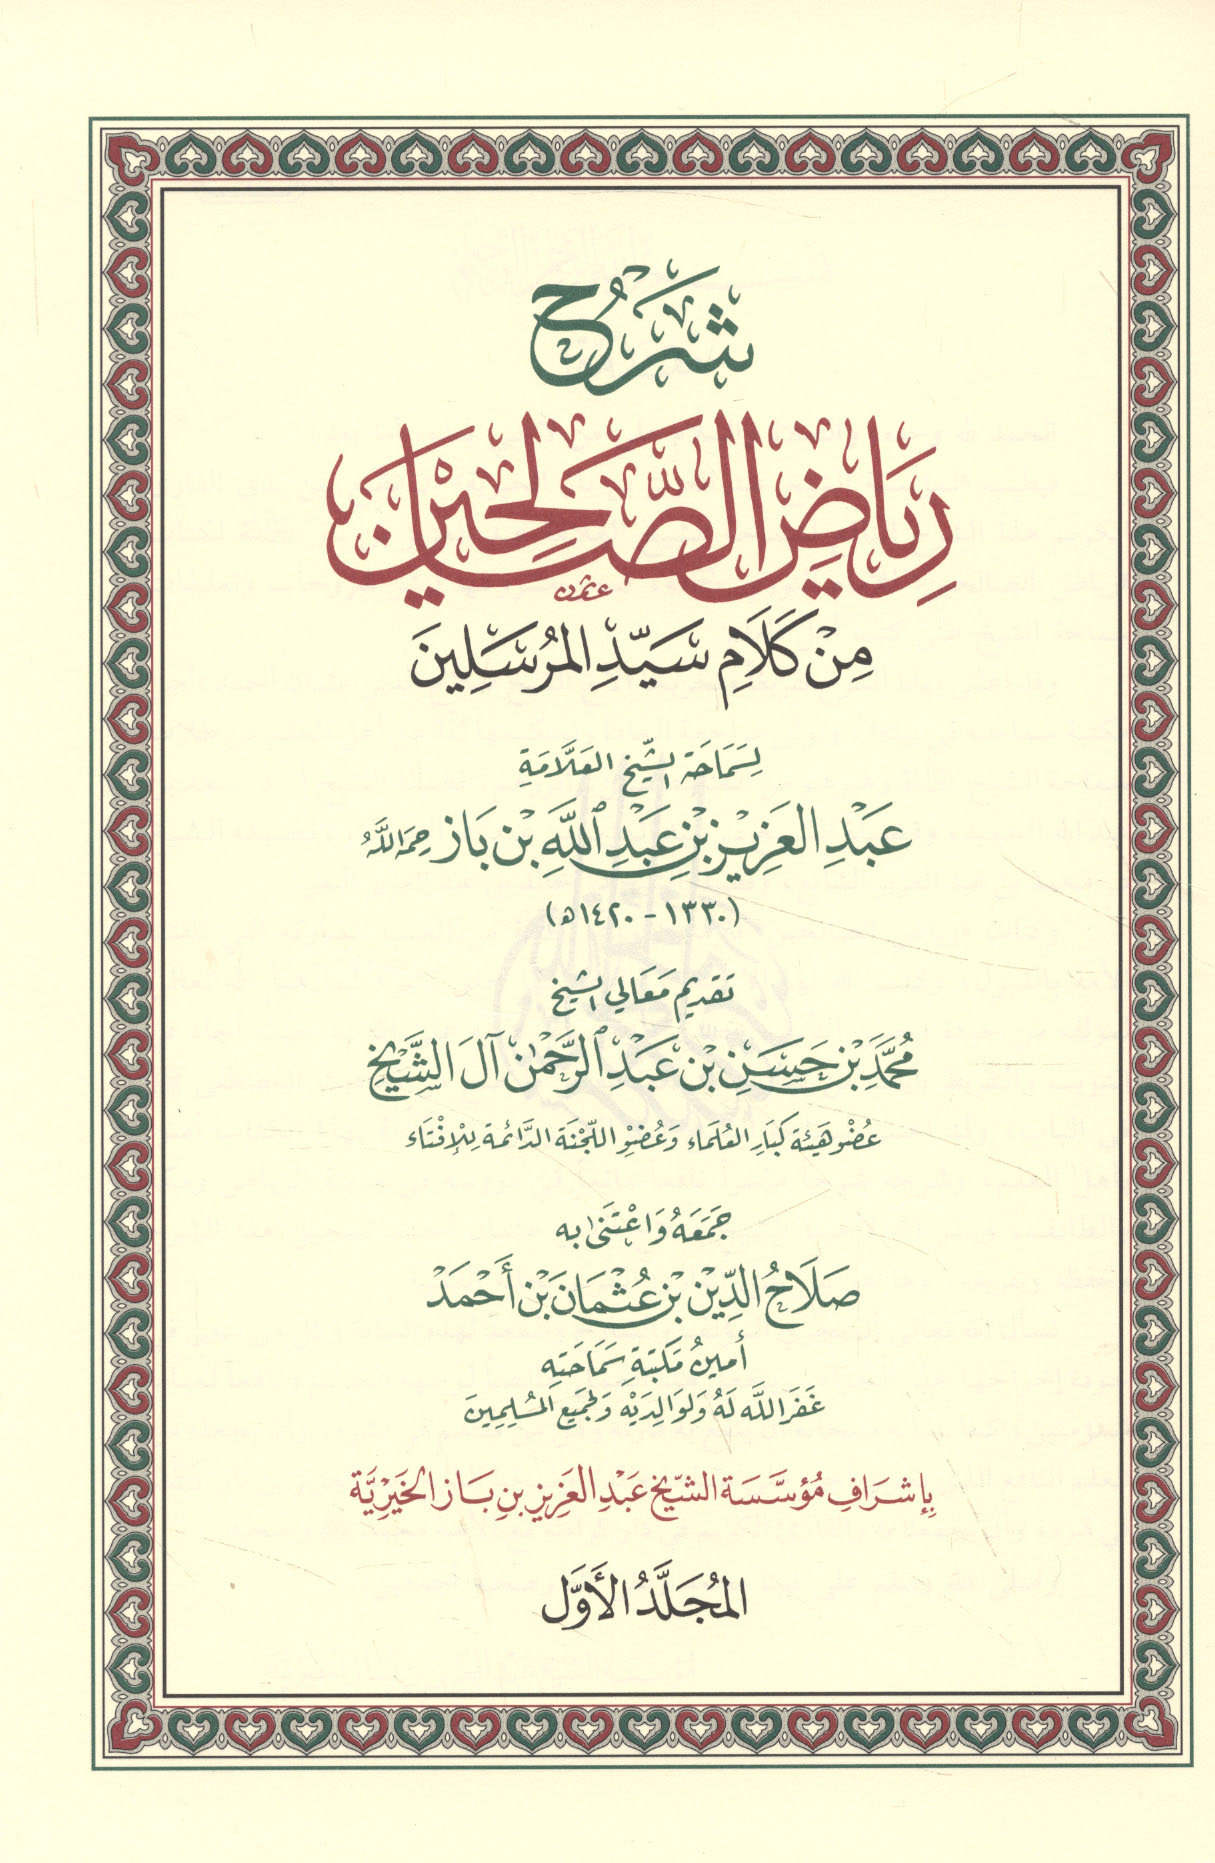 شَرْحُ
رِيَاضِ الصَّالِحِيْنَ
مِنْ كَلَامِ سَيِّدِ المُرْسَلِينَ
لِسَمَاحَةِ الشَّيْخِ العَلَّامَةِ
عَبْدِ العَزِيْزِ بْنِ عَبْدِ اللَّهِ بْنِ بَاز رحمه الله
(١٣٣٠ - ١٤٢٠هـ)
تَقْدِيمِ مَعَالِي الشَّيْخِ
مُحَمَّدِ بْنِ حَسَنِ بْنِ عَبْدِ الرَّحْمٰنِ آلِ الشَّيْخِ
عُضْوِ هَيْئَةِ كِبَارِ العُلَمَاءِ وَعُضْوِ اللَّجْنَةِ الدَّائِمَةِ لِلْإِفْتَاءِ
جَمَعَهُ وَاعْتَنَى بِهِ
صَلَاحُ الدِّيْنِ بْنِ عُثْمَانَ بْنِ أَحْمَدْ
أَمِينُ مَكْتَبَةِ سَمَاحَتِهِ
غَفَرَ اللَّهُ لَهُ وَلِوَالِدَيْهِ وَلِجَمِيعِ المُسْلِمِينَ
بِإِشْرَافِ مُؤَسَّسَةِ الشَّيْخِ عَبْدِ العَزِيزِ بنِ بَازِ الخَيْرِيَّةِ
المُجَلَّدُ الأَوَّل